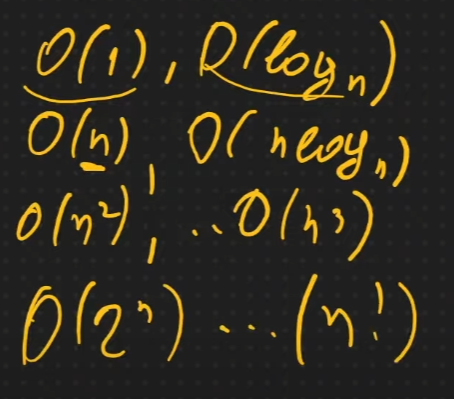 O(1), O(log n)
O(n), O(n log n)
O(n²), ..O(n³)
O(2ⁿ) ... (n!)